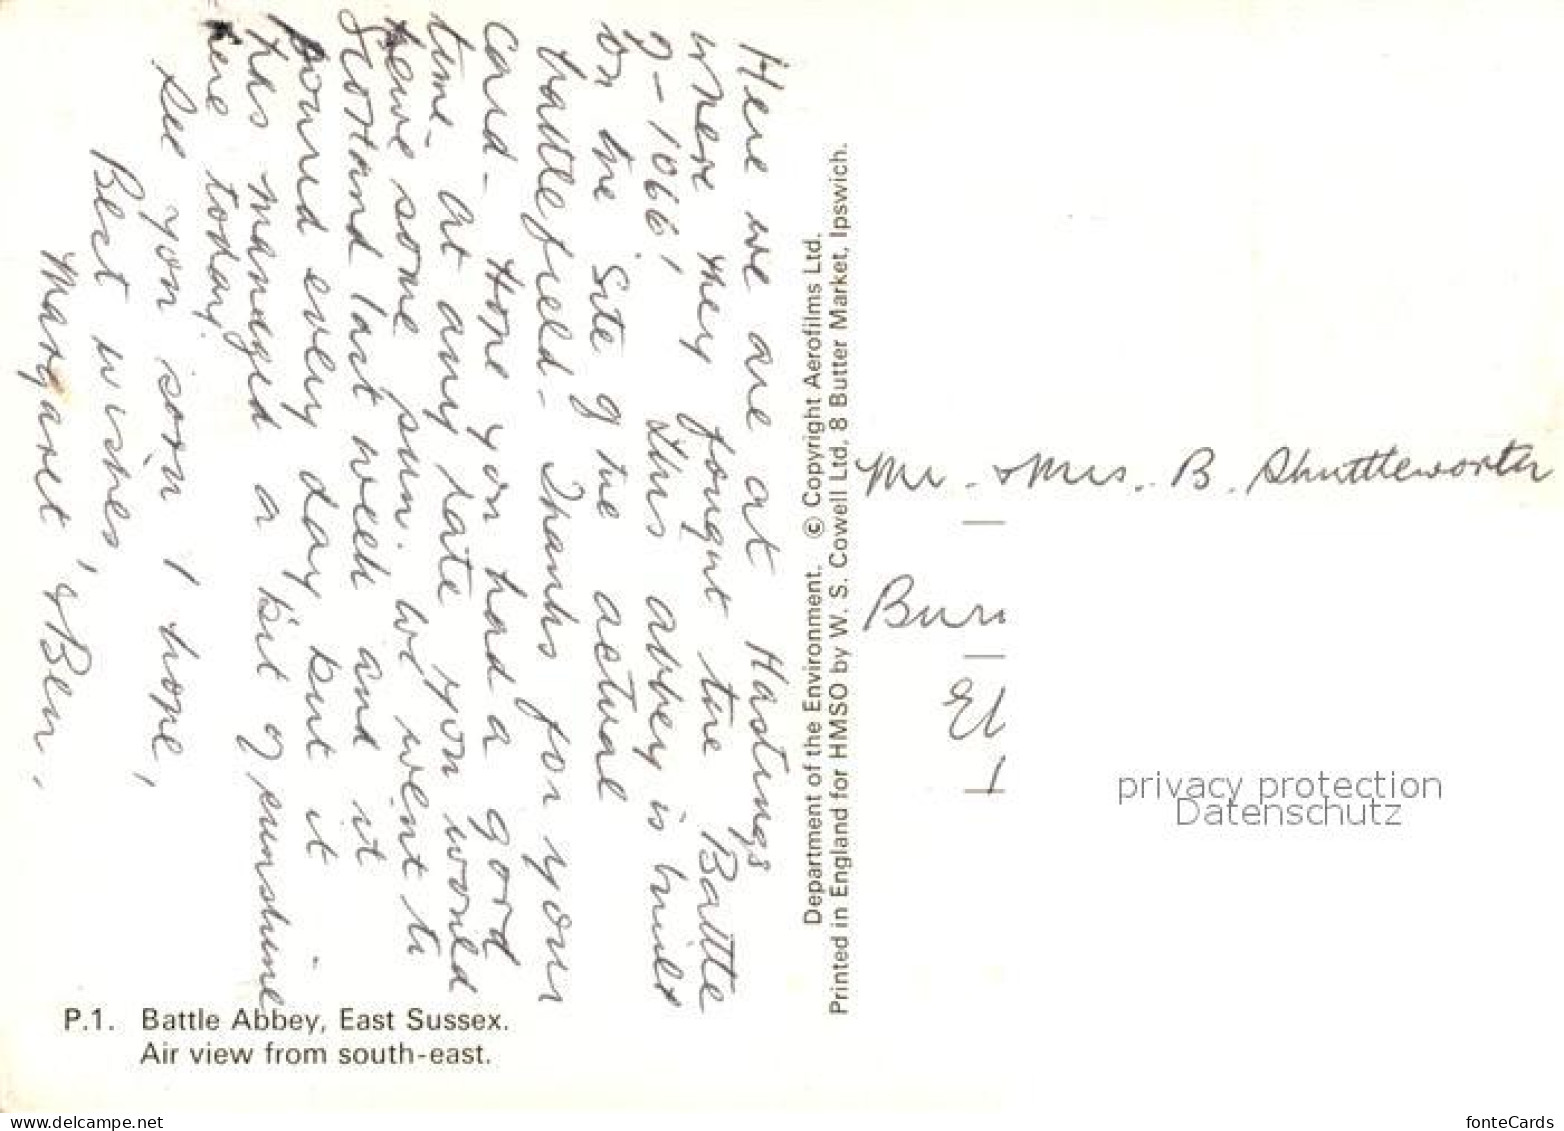 Here we are at Hastings
where they fought the Battle
2-1066! This abbey is built
on the site of the actual
battlefield - Thanks for your
card - Hope you had a good
time - at any rate you would
have some sun. We went to
Scotland last week and it
poured every day but it
has managed a bit of sunshine
here today.
See you soon I hope,
Best wishes,
Margaret & Ben.
P.1. Battle Abbey, East Sussex.
Air view from south-east.
Department of the Environment. © Copyright Aerofilms Ltd.
Printed in England for HMSO by W. S. Cowell Ltd, 8 Butter Market, Ipswich.
Mr. & Mrs. B. Shuttleworth
Bur
El
privacy protection
Datenschutz
www.delcampe.net
your_collection_corner
fonteCards